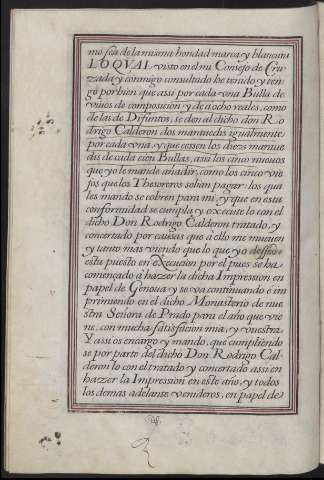 mo sea de la misma bondad marca y blancura
LO QVAL visto en el mi Consejo de Cru-
zada y conmigo consultado he tenido y ten-
go por bien que assi por cada vna Bulla de
viuos de composiçion y de a ocho reales, como
de las de Difuntos, se den al dicho don Ro-
drigo Calderon dos marauedis igualmente
por cada vna. y que cessen los diez maraue
dis de cada cien Bullas, assi los cinco nueuos
que yo le mande añadir, como los cinco vie-
jos que los Thesoreros solian pagar: los qua
les mando se cobren para mi, y que en esta
conformidad se cumpla y execute lo con el
dicho Don Rodrigo Calderon tratado, y
concertado por causas que a ello me mueuen
y tanto mas viendo que lo que yo desseo
esta puesto en execucion por el pues se ha
començado à hazer la dicha Impression en
papel de Genoua y se va continuando e im
primiendo en el dicho Monasterio de nue
stra Señora de Prado para el año que vie
ne, con mucha satisfacion mia, y vuestra
Y assi os encargo y mando, que cumpliendo
se por parte del dicho Don Rodrigo Cal-
deron lo con el tratado y concertado assi en
hazer la Impression en este año, y todos
los demas adelante venideros, en papel de